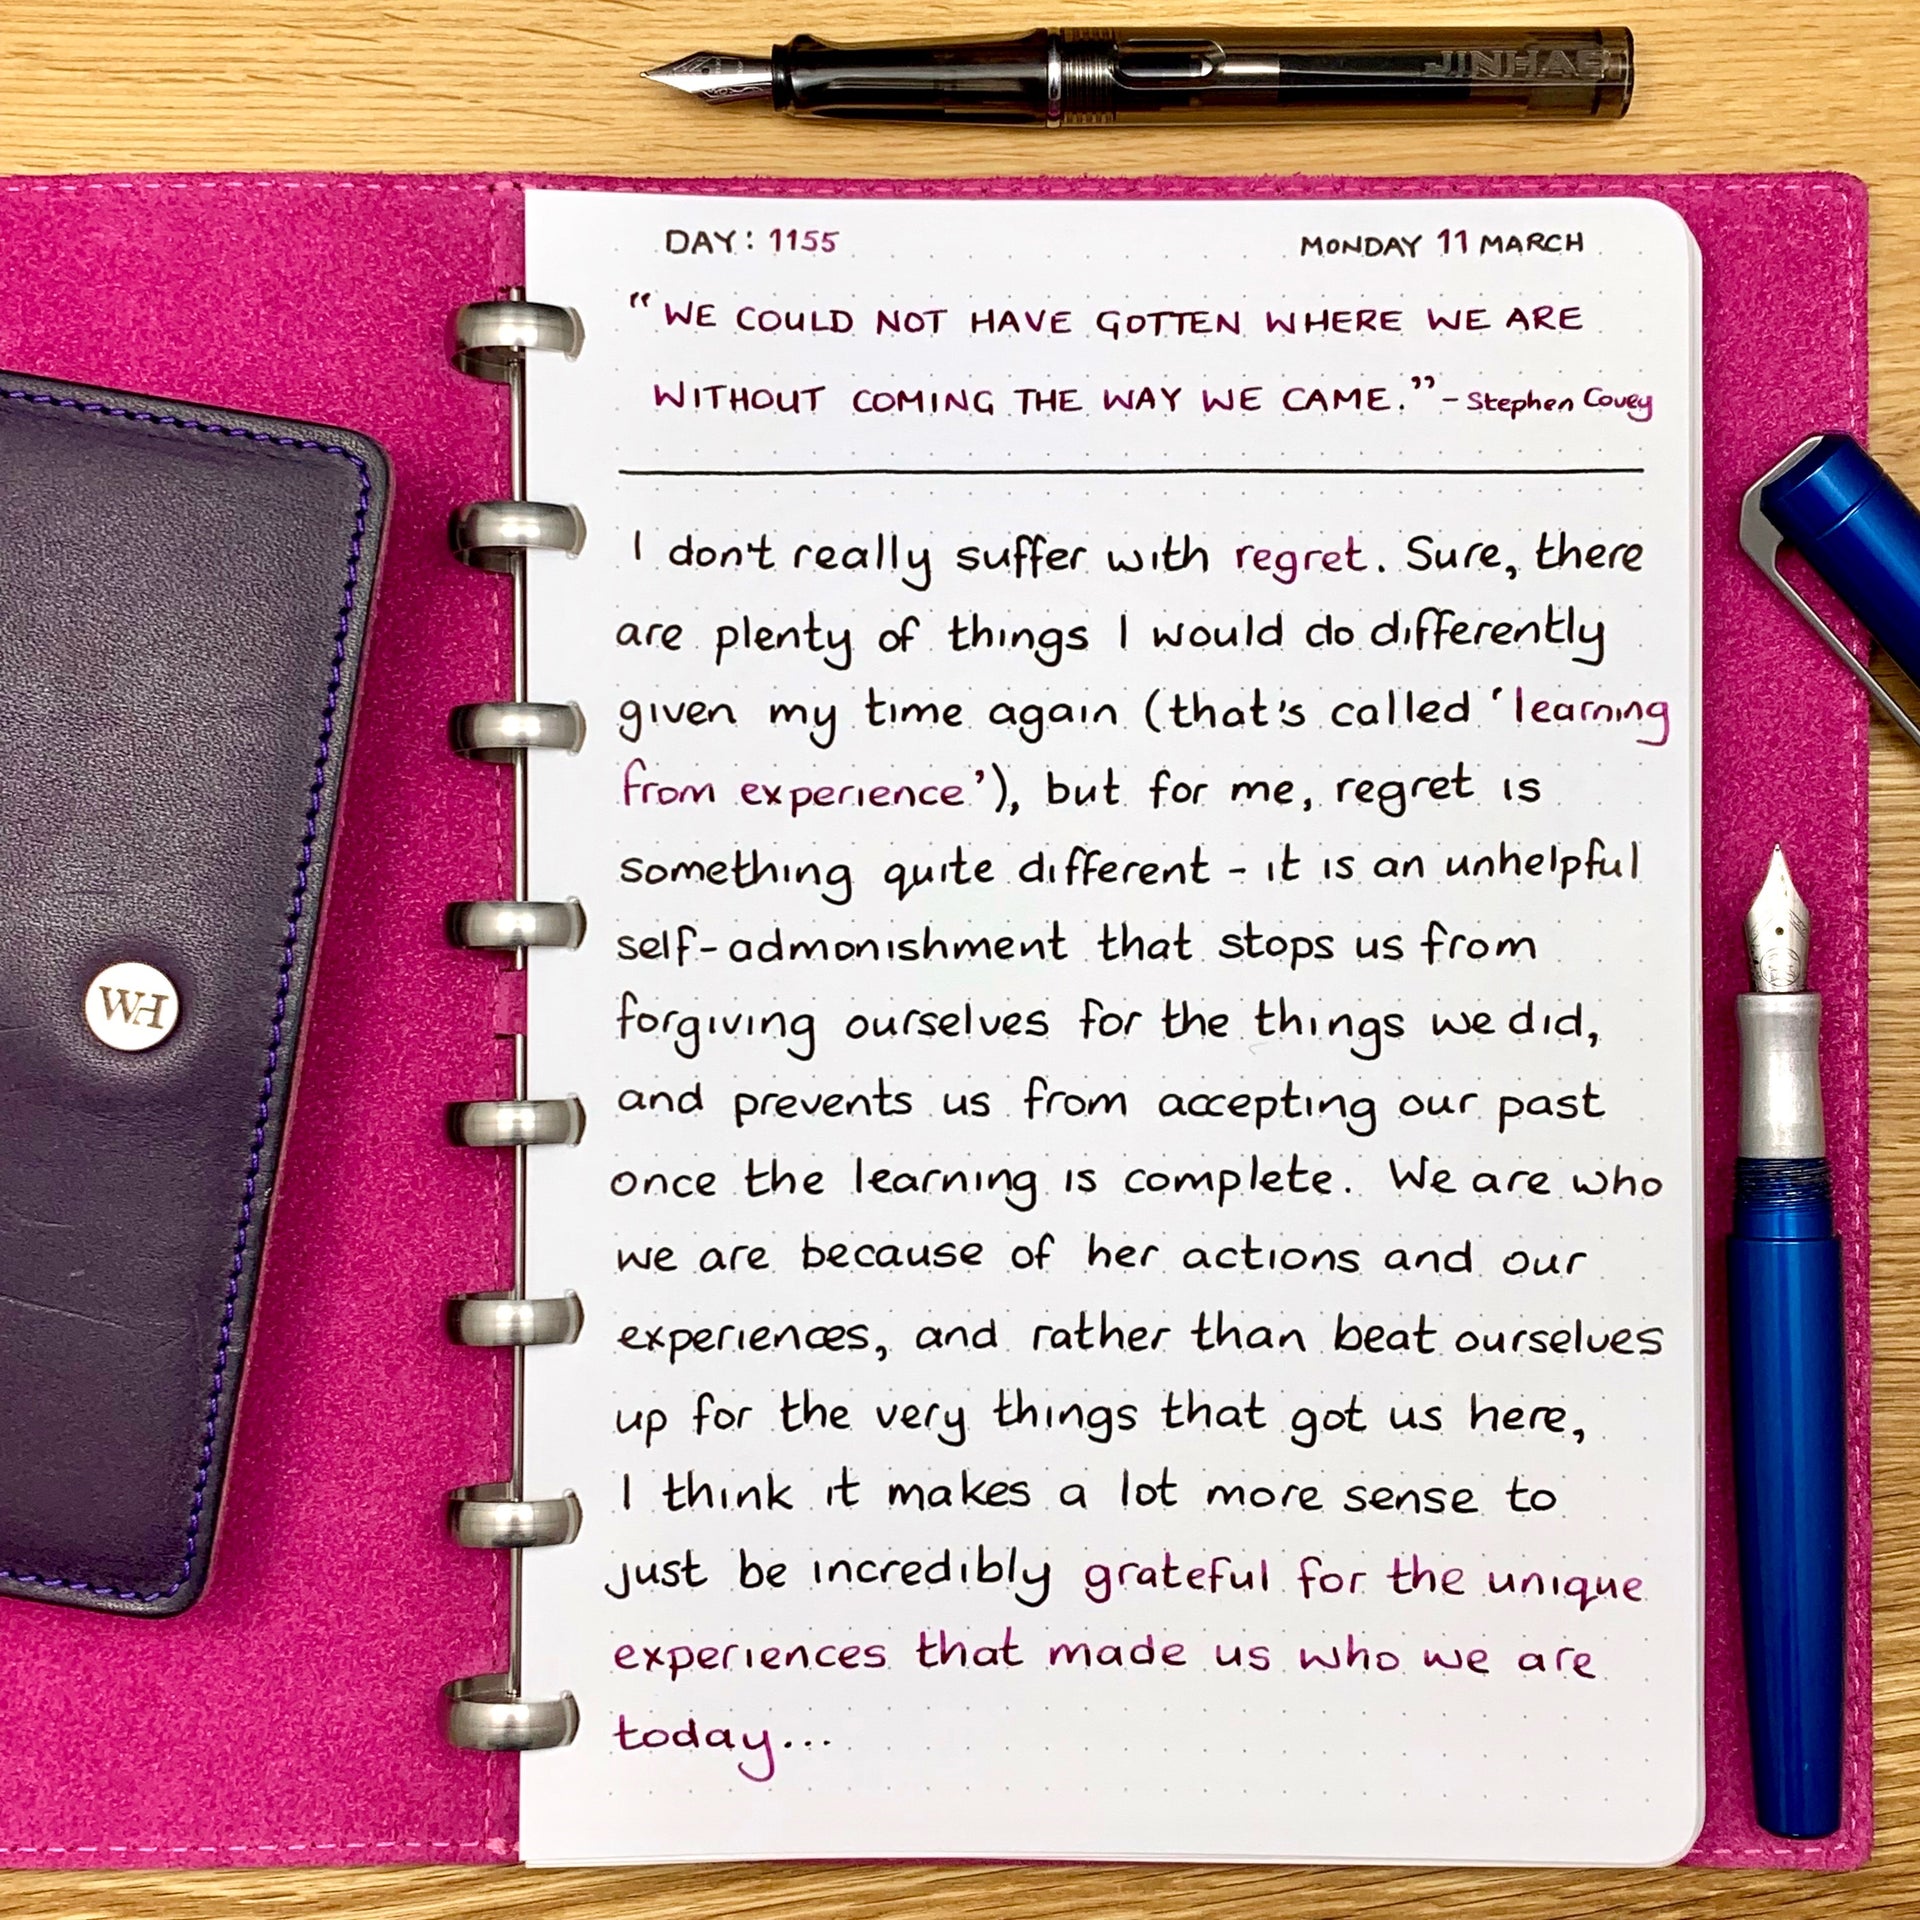 JINHAO
DAY: 1155 MONDAY 11 MARCH
“WE COULD NOT HAVE GOTTEN WHERE WE ARE
WITHOUT COMING THE WAY WE CAME.” - Stephen Covey
I don't really suffer with regret. Sure, there
are plenty of things I would do differently
given my time again (that's called ‘learning
from experience’), but for me, regret is
something quite different - it is an unhelpful
self-admonishment that stops us from
forgiving ourselves for the things we did,
and prevents us from accepting our past
once the learning is complete. We are who
we are because of her actions and our
experiences, and rather than beat ourselves
up for the very things that got us here,
I think it makes a lot more sense to
just be incredibly grateful for the unique
experiences that made us who we are
today...
WH